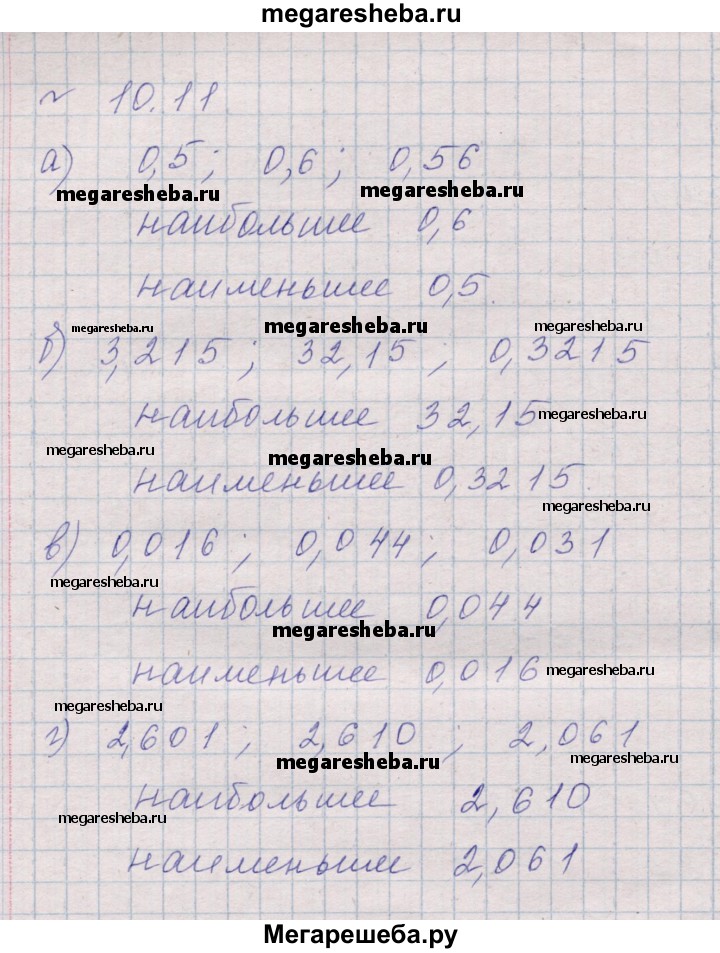 megaresheba.ru
№ 10.11
а) 0,5; 0,6; 0,56
megaresheba.ru megaresheba.ru
наибольшее 0,6
наименьшее 0,5.
megaresheba.ru megaresheba.ru megaresheba.ru
б) 3,215; 32,15; 0,3215
наибольшее 32,15 megaresheba.ru
megaresheba.ru megaresheba.ru
наименьшее 0,3215.
megaresheba.ru
в) 0,016; 0,044; 0,031
megaresheba.ru
наибольшее 0,044
megaresheba.ru
наименьшее 0,016 megaresheba.ru
megaresheba.ru
г) 2,601; 2,610; 2,061
megaresheba.ru megaresheba.ru
наибольшее 2,610
megaresheba.ru
наименьшее 2,061
Мегарешеба.ру